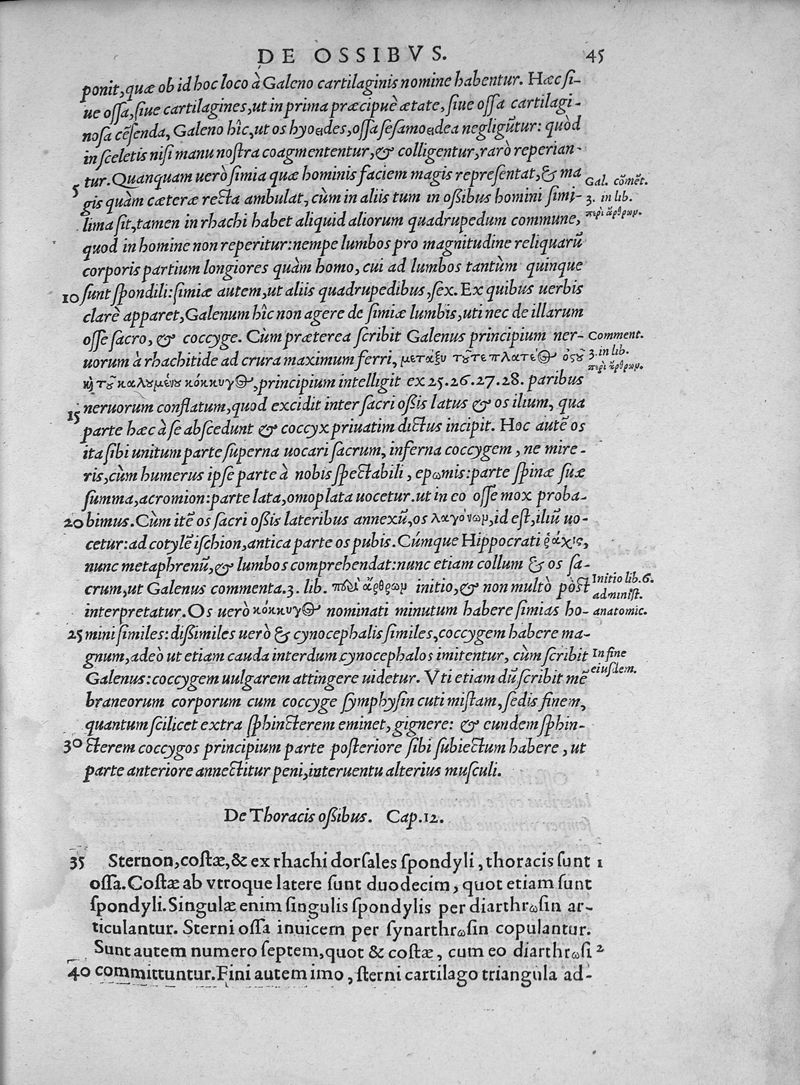 DE OSSIBVS. 45
ponit, quæ ob id hoc loco à Galeno cartilaginis nomine habentur. Hæc ſi-
ue oſſa, ſiue cartilagines, ut in prima præcipuè ætate, ſiue oſſa cartilagi-
noſa cēſenda, Galeno hîc, ut os hyoωdes, oſſa ſeſamoωdea negligūtur: quòd
in ſceletis niſi manu noſtra coagmententur, & colligentur, rarò reperian-
5 tur. Quanquam uerò ſimia quæ hominis faciem magis repreſentat, & ma Gal. cōmēt.
gis quàm cæteræ recta ambulat, cùm in aliis tum in oßibus homini ſimi- 3. in lib.
lima ſit, tamen in rhachi habet aliquid aliorum quadrupedum commune, περὶ ἄρθρωμ.
quod in homine non reperitur: nempe lumbos pro magnitudine reliquarū
corporis partium longiores quàm homo, cui ad lumbos tantùm quinque
10 ſunt ſpondili: ſimiæ autem, ut aliis quadrupedibus, ſex. Ex quibus uerbis
clarè apparet, Galenum hîc non agere de ſimiæ lumbis, uti nec de illarum
oſſe ſacro, & coccyge. Cùm præterea ſcribit Galenus principium ner- Comment.
uorum à rhachitide ad crura maximum ferri, μεταξὺ τοῦ τε πλατέος ὀστοῦ 3. in lib.
καὶ τοῦ καλουμένου κόκκυγος, principium intelligit ex 25. 26. 27. 28. paribus περὶ ἄρθρωμ.
15 neruorum conflatum, quod excidit inter ſacri oßis latus & os ilium, qua
parte hæc à ſe abſcedunt & coccyx priuatim dictus incipit. Hoc autē os
ita ſibi unitum parte ſuperna uocari ſacrum, inferna coccygem, ne mire-
ris, cùm humerus ipſe parte à nobis ſpectabili, epωmis: parte ſpinæ ſuæ
ſumma, acromion: parte lata, omoplata uocetur. ut in eo oſſe mox proba-
20 bimus. Cùm itē os ſacri oßis lateribus annexū, os λαγόνωμ, id eſt, iliū uo-
cetur: ad cotylē iſchion, antica parte os pubis. Cúmque Hippocrati ῥάχις,
nunc metaphrenū, & lumbos comprehendat: nunc etiam collum & os ſa-
crum, ut Galenus commenta. 3. lib. περὶ ἄρθρωμ initio, & non multò pòſt Initio lib. 6.
adminiſt.
interpretatur. Os uerò κόκκυγος nominati minutum habere ſimias ho- anatomic.
25 mini ſimiles: dißimiles uerò & cynocephalis ſimiles, coccygem habere ma-
gnum, adeò ut etiam cauda interdum cynocephalos imitentur, cùm ſcribit In fine
Galenus: coccygem uulgarem attingere uidetur. Vti etiam dū ſcribit mē eiuſdem.
braneorum corporum cum coccyge ſymphyſin cuti miſtam, ſedis finem,
quantum ſcilicet extra ſphincterem eminet, gignere: & eundem ſphin-
30 cterem coccygos principium parte poſteriore ſibi ſubiectum habere, ut
parte anteriore annectitur peni, interuentu alterius muſculi.
De Thoracis oßibus. Cap. 12.
35 Sternon, coſtæ, & ex rhachi dorſales ſpondyli, thoracis ſunt 1
oſſa. Coſtæ ab vtroque latere ſunt duodecim, quot etiam ſunt
ſpondyli. Singulæ enim ſingulis ſpondylis per diarthrωſin ar-
ticulantur. Sterni oſſa inuicem per ſynarthrωſin copulantur.
Sunt autem numero ſeptem, quot & coſtæ, cum eo diarthrωſi 2
40 committuntur. Fini autem imo, ſterni cartilago triangula ad-